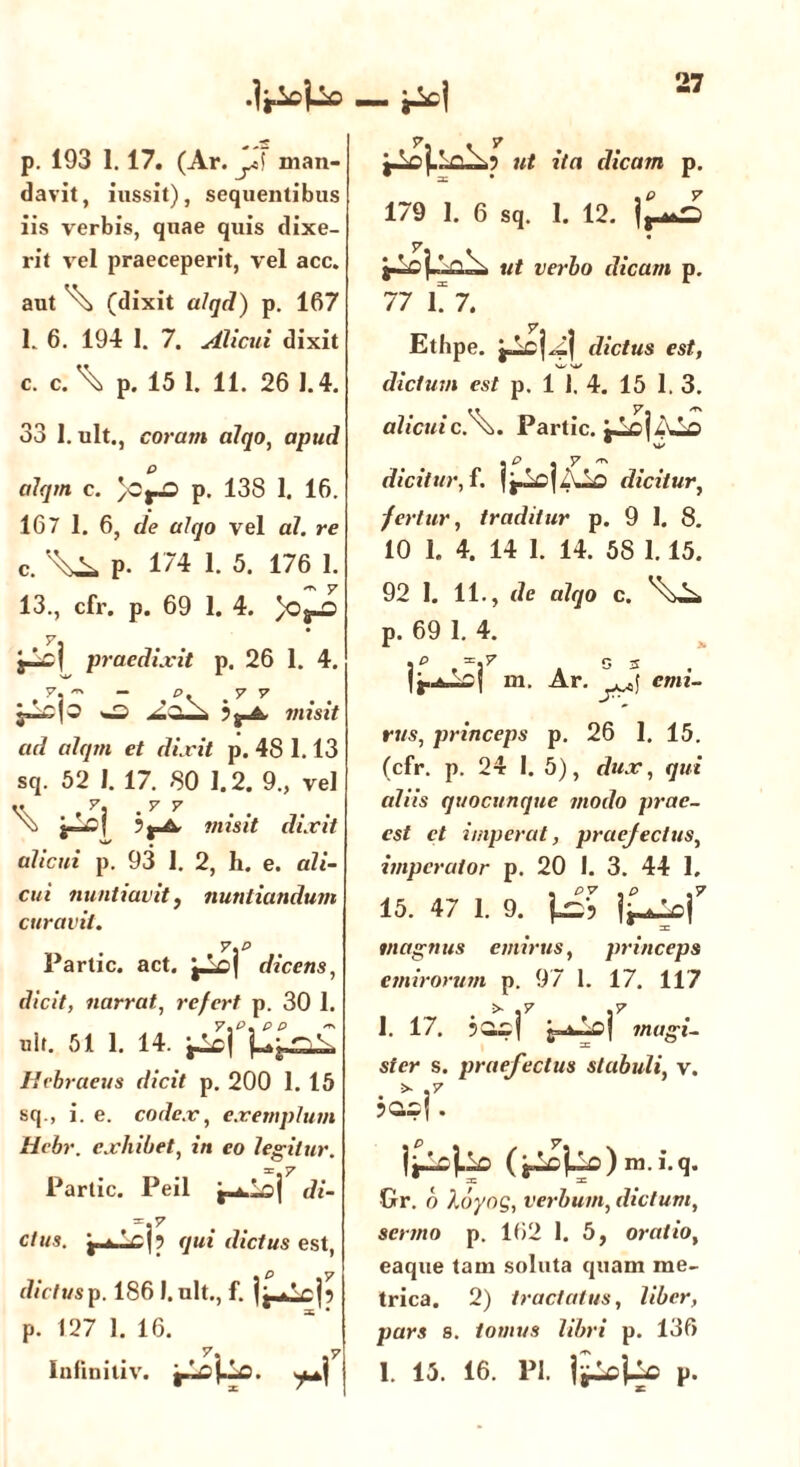 .ܐܡܪ — ܡܐܡܪܐ
27
p. 193 l. 17. (Ar. أمر man-
davit, iussit), sequentibus
iis verbis, quae quis dixe-
rit vel praeceperit, vel acc.
aut ܠ (dixit alqd) p. 167
l. 6. 194 l. 7. Alicui dixit
c. c. ܠ p. 15 l. 11. 26 l. 4.
33 l. ult., coram alqo, apud
alqm c. ܩܕܡ p. 138 l. 16.
167 l. 6, de alqo vel al. re
c. ܥܠ p. 174 l. 5. 176 l.
13., cfr. p. 69 l. 4. ܩܕܡ
ܐܡܪ praedixit p. 26 l. 4.
ܫܕܪ ܠܘܬ ܒ ܘܐܡܪ misit
ad alqm et dixit p. 48 l. 13
sq. 52 l. 17. 80 l. 2. 9., vel
ܫܕܪ ܐܡܪ ܠ misit dixit
alicui p. 93 l. 2, h. e. ali-
cui nuntiavit, nuntiandum
curavit.
Partic. act. ܐܡܪ dicens,
dicit, narrat, refert p. 30 l.
ult. 51 l. 14. ܥܒܪܝܐ ܐܡܪ
Hebraeus dicit p. 200 l. 15
sq., i. e. codex, exemplum
Hebr. exhibet, in eo legitur.
Partic. Peil ܐܡܝܪ di-
ctus. ܕܐܡܝܪ qui dictus est,
dictus p. 186 l. ult., f. ܕܐܡܝܪܐ
p. 127 l. 16.
Infinitiv. ܡܐܡܪ. ܐܝܟ
ܕܠܡܐܡܪ ut ita dicam p.
179 l. 6 sq. l. 12. ܟܡܝܪܐ
ܠܡܐܡܪ ut verbo dicam p.
77 l. 7.
Ethpe. ܐܬܐܡܪ dictus est,
dictum est p. 1 l. 4. 15 l. 3.
alicui c. ܠ. Partic. ܡܬܐܡܪ
dicitur, f. ܡܬܐܡܪܐ dicitur,
fertur, traditur p. 9 l. 8.
10 l. 4. 14 l. 14. 58 l. 15.
92 l. 11., de alqo c. ܥܠ
p. 69 l. 4.
ܐܡܝܪܐ m. Ar. أمير emi-
rus, princeps p. 26 l. 15.
(cfr. p. 24 l. 5), dux, qui
aliis quocunque modo prae-
est et imperat, praefectus,
imperator p. 20 l. 3. 44 l.
15. 47 l. 9. ܐܡܝܪܐ ܪܒܐ
magnus emirus, princeps
emirorum p. 97 l. 17. 117
l. 17. ܐܡܝܪ ܐܟܘܪ magi-
ster s. praefectus stabuli, v.
ܐܟܘܪ.
ܡܐܡܪܐ (ܡܐܡܪ) m. i. q.
Gr. ὁ λόγος, verbum, dictum,
sermo p. 162 l. 5, oratio,
eaque tam soluta quam me-
trica. 2) tractatus, liber,
pars s. tomus libri p. 136
l. 15. 16. Pl. ܡܐܡܪ̈ܐ p.